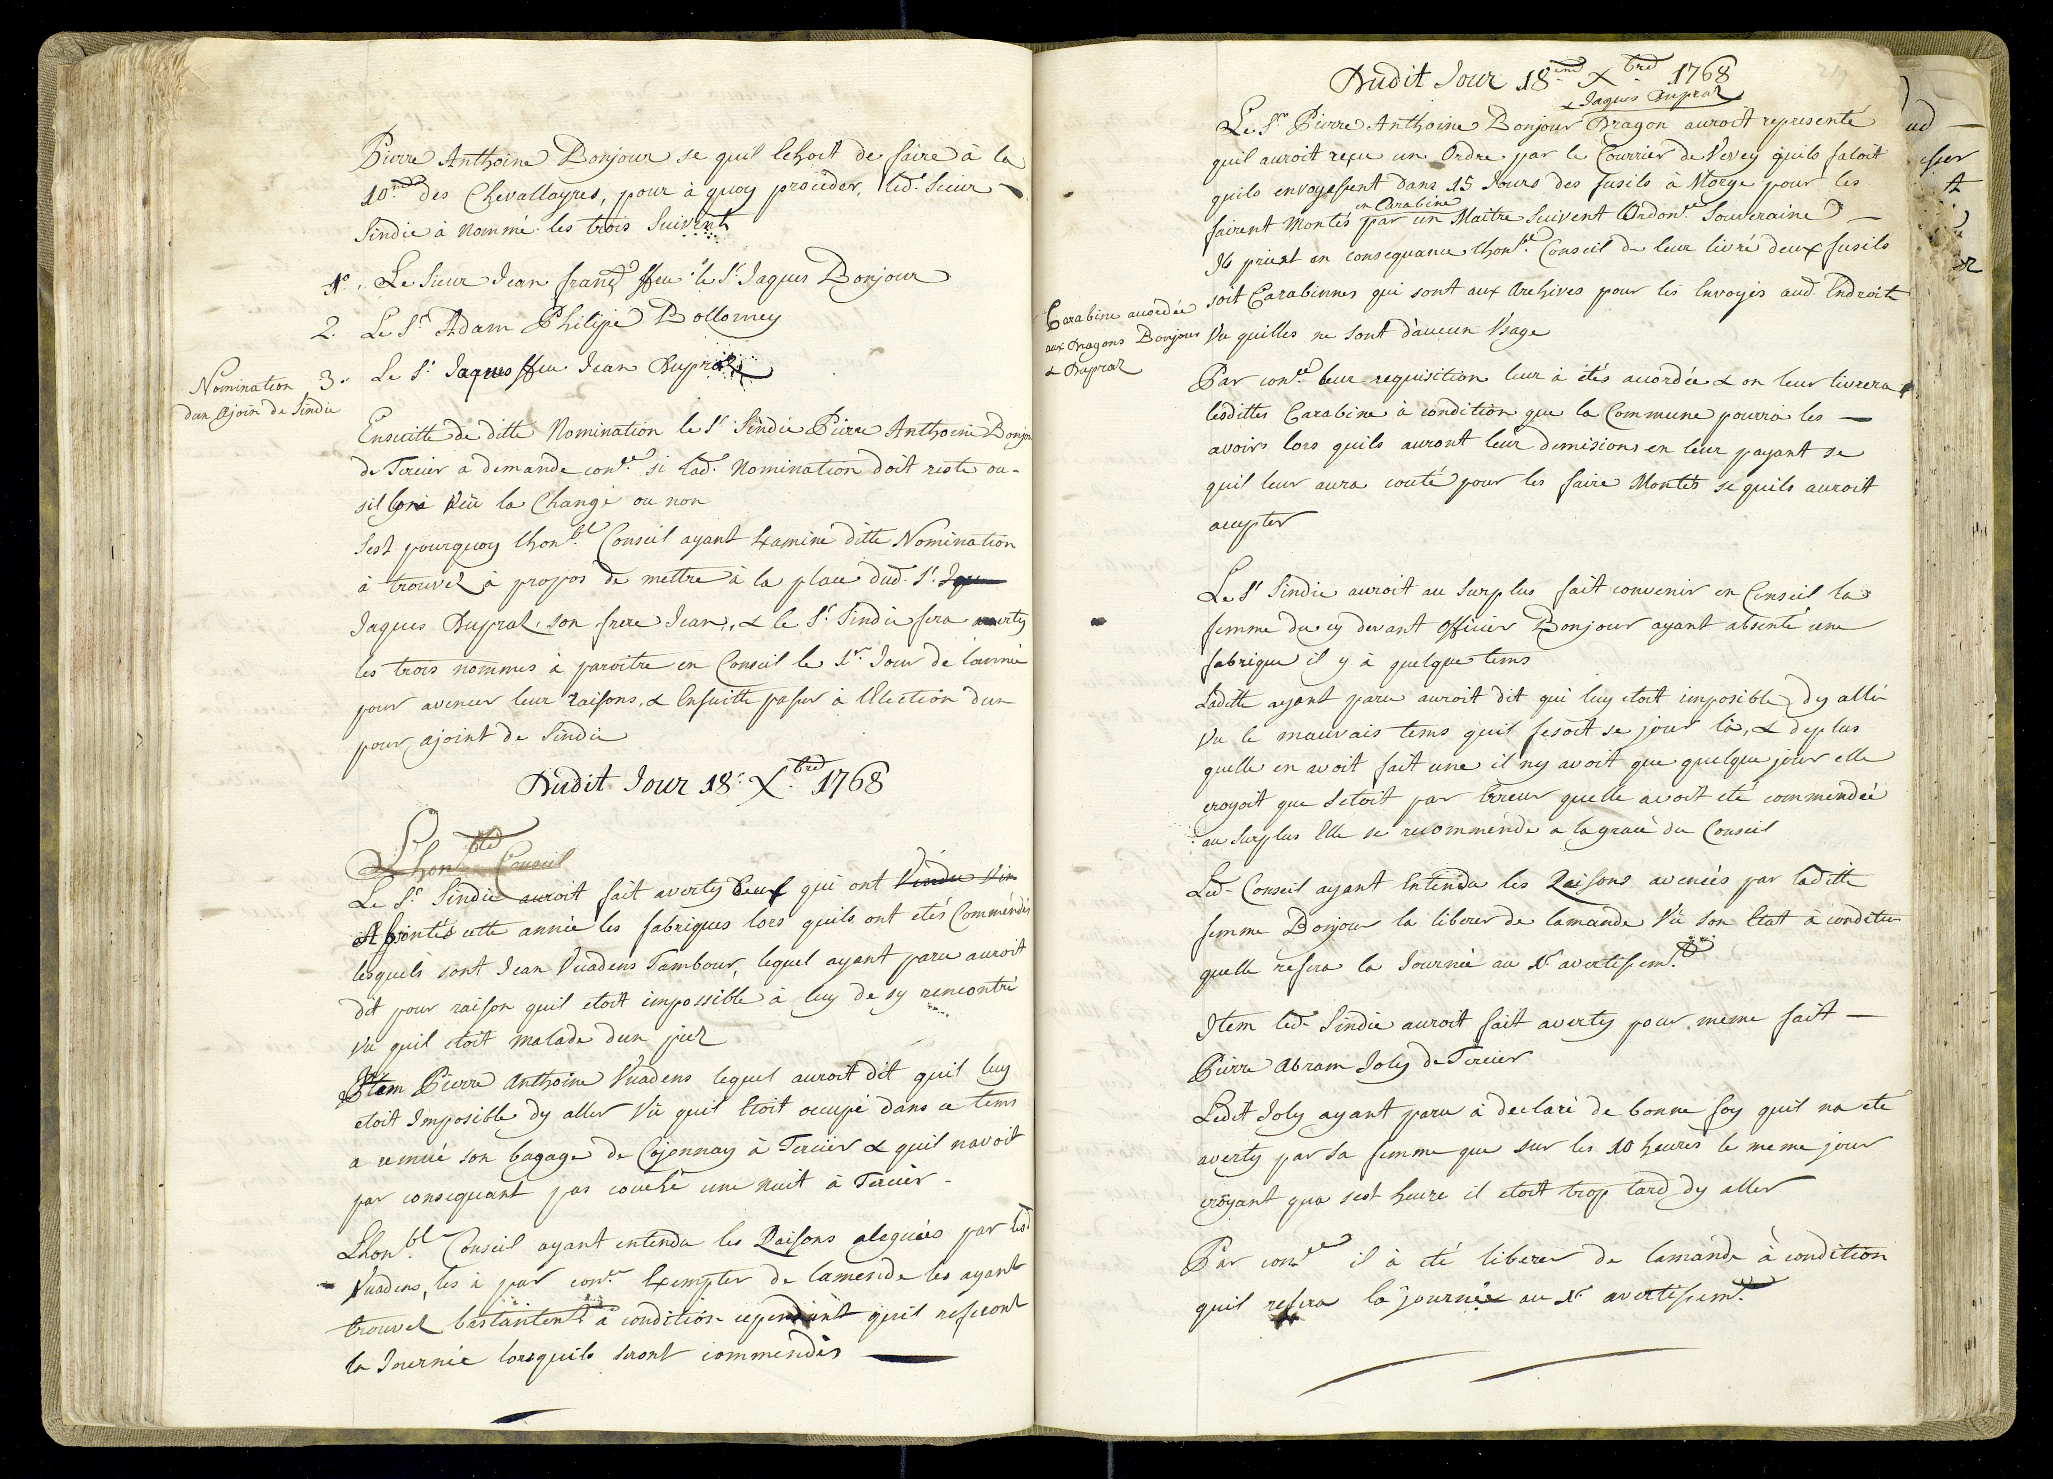 Pierre Anthoine Bonjour se quil lehoit de faire à la
10.me des Chevallayres, pour à quoy proceder, led. Sieur
Sindic à Nommé les trois Suivent
1° Le Sieur Jean franç feu le Sr Jaques Bonjour
2. Le Sr Adam Philipe Bollomey
3. Le Sr Jaques ffeu Jean Dupraz
Nomination
dun Ajoin de Sindic
Ensuitte de ditte Nomination le Sr Sindic Pierre Anthoine Bonjou
de Tercier a demande con.ce si lad. Nomination doit reste ou
sil veu la Changé ou non
Sest pourquoy lhon.ble Conseil ayant Examiné ditte Nomination
à trouvez à propos de mettre à la place dud. Sr.
Jaques Dupraz, son frere Jean, & le Sr. Sindic fera averty
les trois nommes à paroitre en Conseil le 1er Jour de lannée
pour avencer leur raisons, & Ensuitte passer à lElection dun
pour ajoint de Sindic
Dudit Jour 18e Xbre 1768
Lhon.ble Conseil
Le Sr. Sindic auroit fait averty Ceux qui ont Vendu Vin
cette année les fabriques lors quils ont etés Commendés
lesquels sont Jean Vuadens Tambour, lequel ayant paru auroit
dit pour raison quil etoit impossible à luy de sy rencontré
vu quil etoit malade dun piez
Item Pierre Anthoine Vuadens lequel auroit dit quil luy
etoit Imposible dy aller Vû quil Etoit occupé dans ce tems
a remué son bagage de Cojonnay à Tercier & quil navoit
par consequant pas couché une nuit à Tercier
Lhon.ble Conseil ayant entendu les Raisons aleguées par lesd
Vuadens, les à par con.ce Exempter de lamende les ayant
trouvez bastantent à condition cependant quil referont
la Journée lorsquils seront commendés
Dudit Jour 18.me Xbre 1768
& Jaques Dupraz
Le Sr Pierre Anthoine Bonjour Dragon auroit representé
quil auroit reçu un Ordre par le Courrier de Vevey quils faloit
quils envoyassent dans 15 Jours des fusils à Morge pour les
en Carabine
fairent Montés par un Maitre Suivent Ordon.ce Souveraine
Ils priest en consequance lhon.ble Conseil de leur livré deux fusils
soit Carabinnes qui sont aux Archives pour les Envoyés aud. Endroit
Vu quilles ne sont d'aucun Usage
Carabine accordée
aux Dragons Bonjour
& Dupraz
Par con.ce leur requisition leur à étés accordée & on leur livrera
lesdittes Carabine à condition que la Commune pourra les
avoirs lors quils auront leur demisions en leur payant se
quil leur aura couté pour les faire Montés se quils auroit
accepter
Le Sr Sindic auroit au Surplus fait convenir en Conseil la
femme du cy devant Officier Bonjour ayant absenté une
fabrique il y à quelque tems
Ladite ayant paru auroit dit qui luy etoit imposible dy allé
Vu le mauvais tems quil fesoit se jour là, & deplus
quelle en avoit fait une il ny avoit que quelque jour elle
croyoit que setoit par Erreur quelle avoit eté commendée
au Surplus Elle se recommende a la grace du Conseil
Led. Conseil ayant Entendu les Raisons avencés par laditte
femme Bonjour la liberer de lamande Vû son Etat à condition
quelle refera la Journée au 1er avertissem.t
Item led. Sindic auroit fait averty pour meme fait
Pierre Abram Joly de Tercier
Ledit Joly ayant paru à declaré de bonne foy quil na eté
averty par sa femme que sur les 10 heures le meme jour
croyant qua sest heure il etoit trop tard dy aller
Par con.ce il à eté liberer de lamande à condition
quil refera la journée au 1er avertissem.t